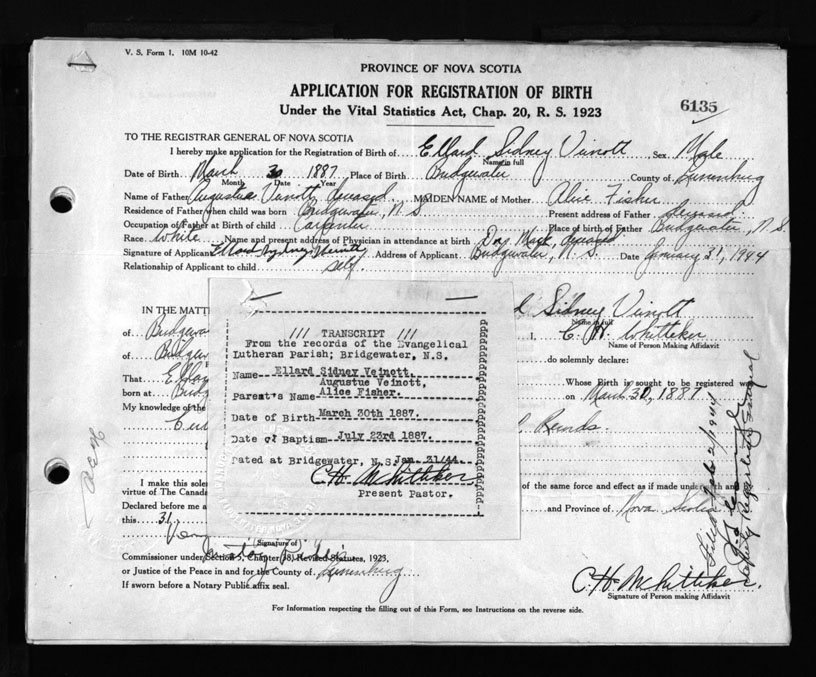 V. S. Form 1. 10M 10-42
PROVINCE OF NOVA SCOTIA
APPLICATION FOR REGISTRATION OF BIRTH
Under the Vital Statistics Act, Chap. 20, R. S. 1923
6135
TO THE REGISTRAR GENERAL OF NOVA SCOTIA
I hereby make application for the Registration of Birth of Ellard Sidney Vinott Sex Male
Name in full
Date of Birth March 30 1887 Place of Birth Bridgewater County of Lunenburg
Month Date Year
Name of Father Augustus Vinott deceased MAIDEN NAME of Mother Alice Fisher
Residence of Father when child was born Bridgewater, N S Present address of Father deceased
Occupation of Father at Birth of child Carpenter Place of birth of Father Bridgewater, N S.
Race White Name and present address of Physician in attendance at birth Doy Mack, deceased
Signature of Applicant Ellard Sydney Veinott Address of Applicant Bridgewater, N. S. Date January 31, 1944
Relationship of Applicant to child self
IN THE MATT d Sidney Vinott
Name in full
of Bridgewa I, C H Whitteker
Name of Person Making Affidavit
of Bridgew do solemnly declare:
That Ella Whose Birth is sought to be registered was
born at Brid on March 30, 1887
My knowledge of the
I make this solem of the same force and effect as if made under oath and by
virtue of The Canada
Declared before me a and Province of Nova Scotia
this 31
(Signature of)
Commissioner under Section 5, Chapter 38, Revised Statutes, 1923,
or Justice of the Peace in and for the County of Lunenburg
If sworn before a Notary Public affix seal.
C H Whitteker.
Signature of Person making Affidavit
For Information respecting the filling out of this Form, see Instructions on the reverse side.
/// TRANSCRIPT ///
From the records of the Evangelical
Lutheran Parish; Bridgewater, N.S.
Name- Ellard Sidney Veinott.
Augustue Veinott,
Parent's Name- Alice Fisher.
Date of Birth- March 30th 1887.
Date of Baptism- July 23rd 1887.
Dated at Bridgewater, N.S. Jan. 31/44.
C H Whitteker
Present Pastor.
Deputy Registrar General